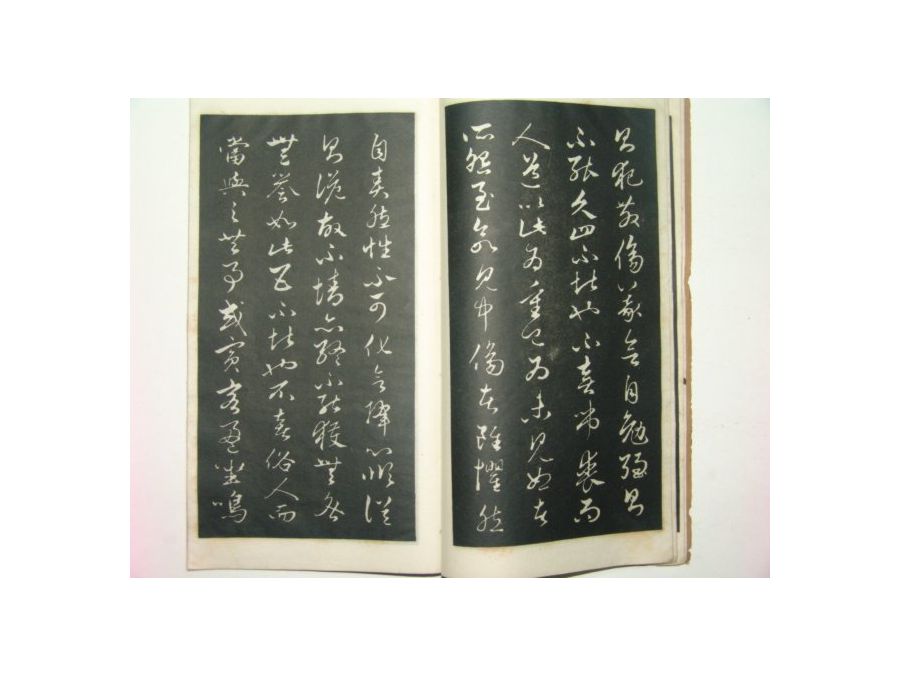 則犯教傷義欲自勉強則
不能久四不堪也不喜弔喪而
人道以此為重已為未見恕者
所怨至欲見中傷者雖懼然
自責然性不可化欲降心順從
則詭故不情亦終不能獲無咎
無譽如此五不堪也不喜俗人而
當與之共事或賓客盈坐鳴